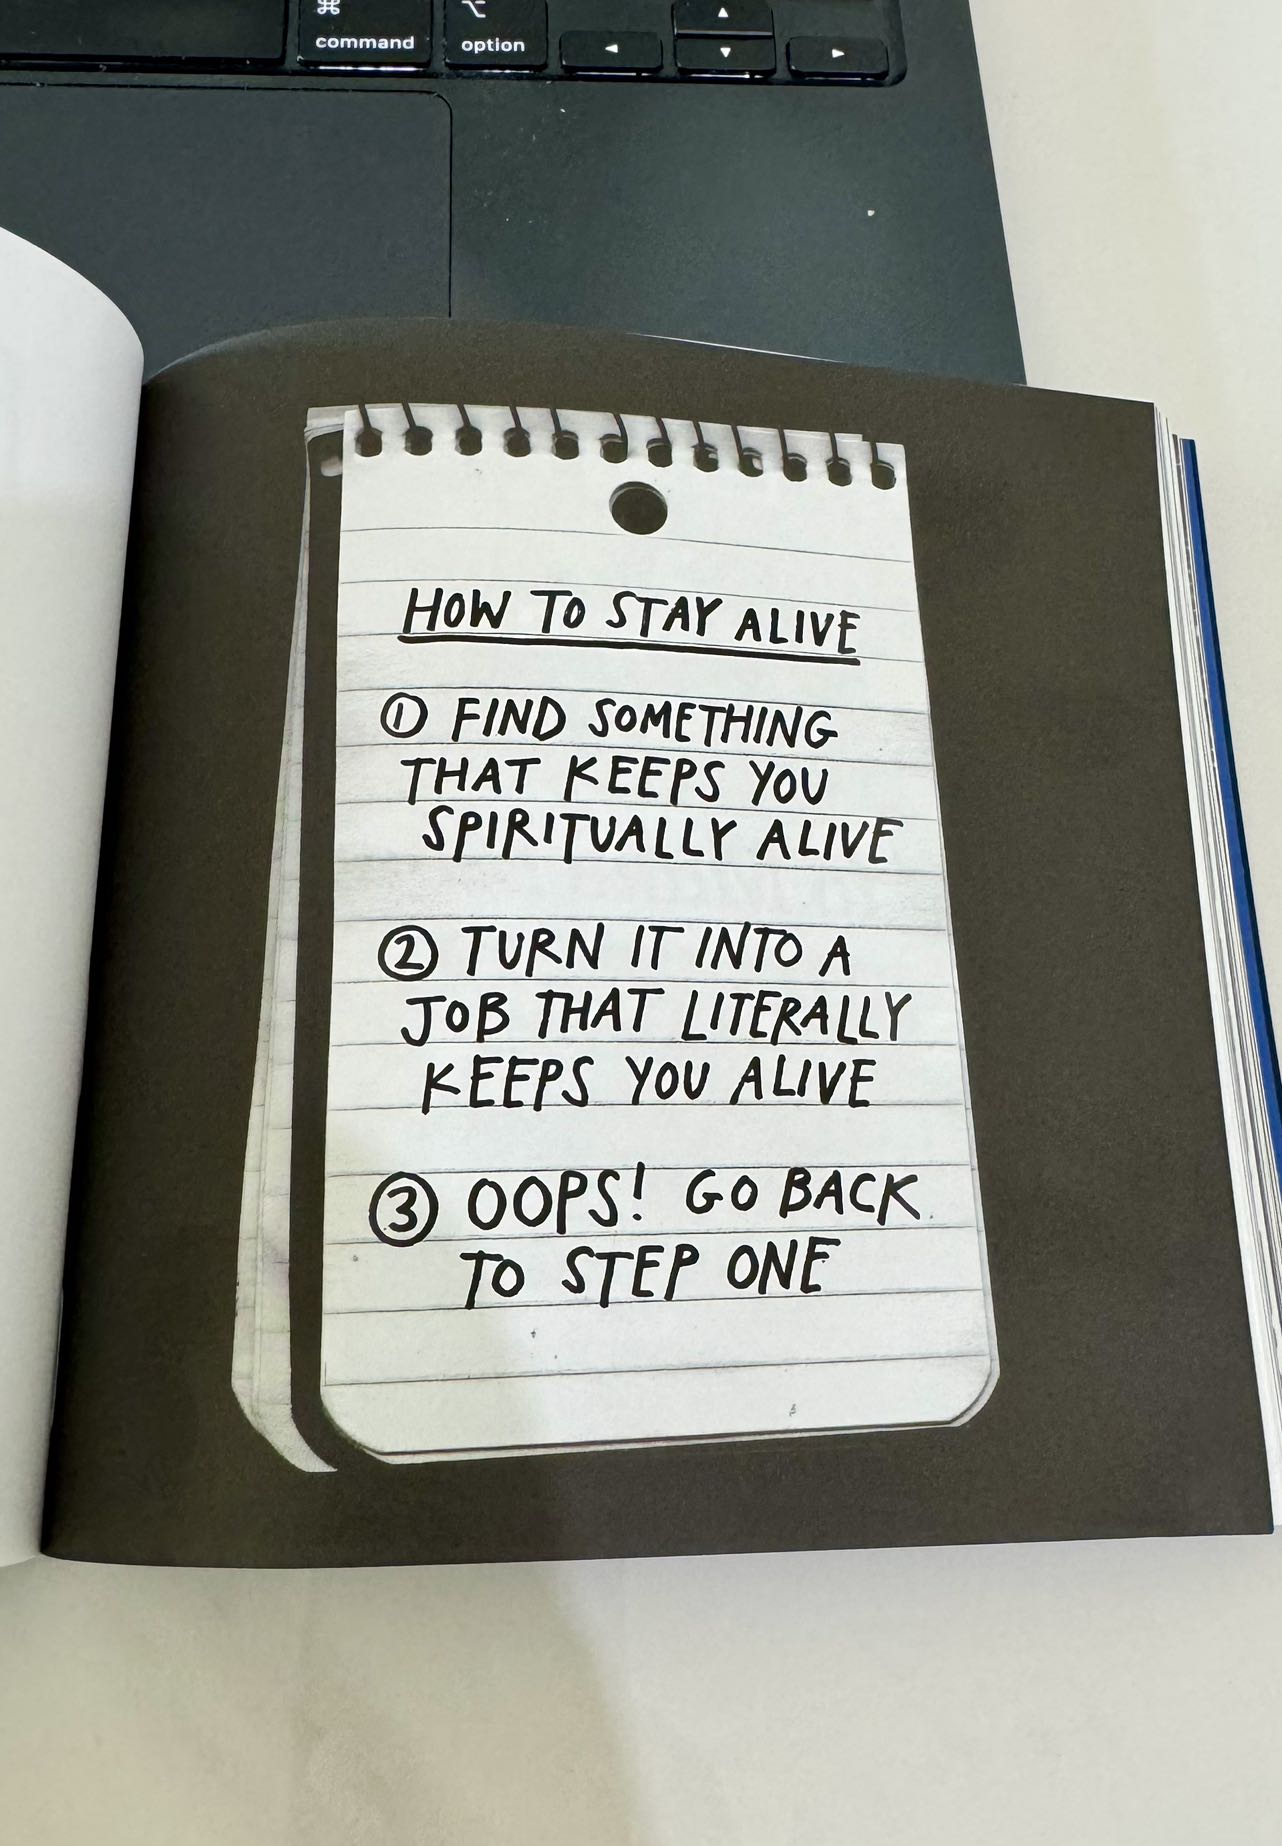 ⌘ ⌥
command option
◀ ▲ ▼ ▶
HOW TO STAY ALIVE
① FIND SOMETHING
THAT KEEPS YOU
SPIRITUALLY ALIVE
② TURN IT INTO A
JOB THAT LITERALLY
KEEPS YOU ALIVE
③ OOPS! GO BACK
TO STEP ONE